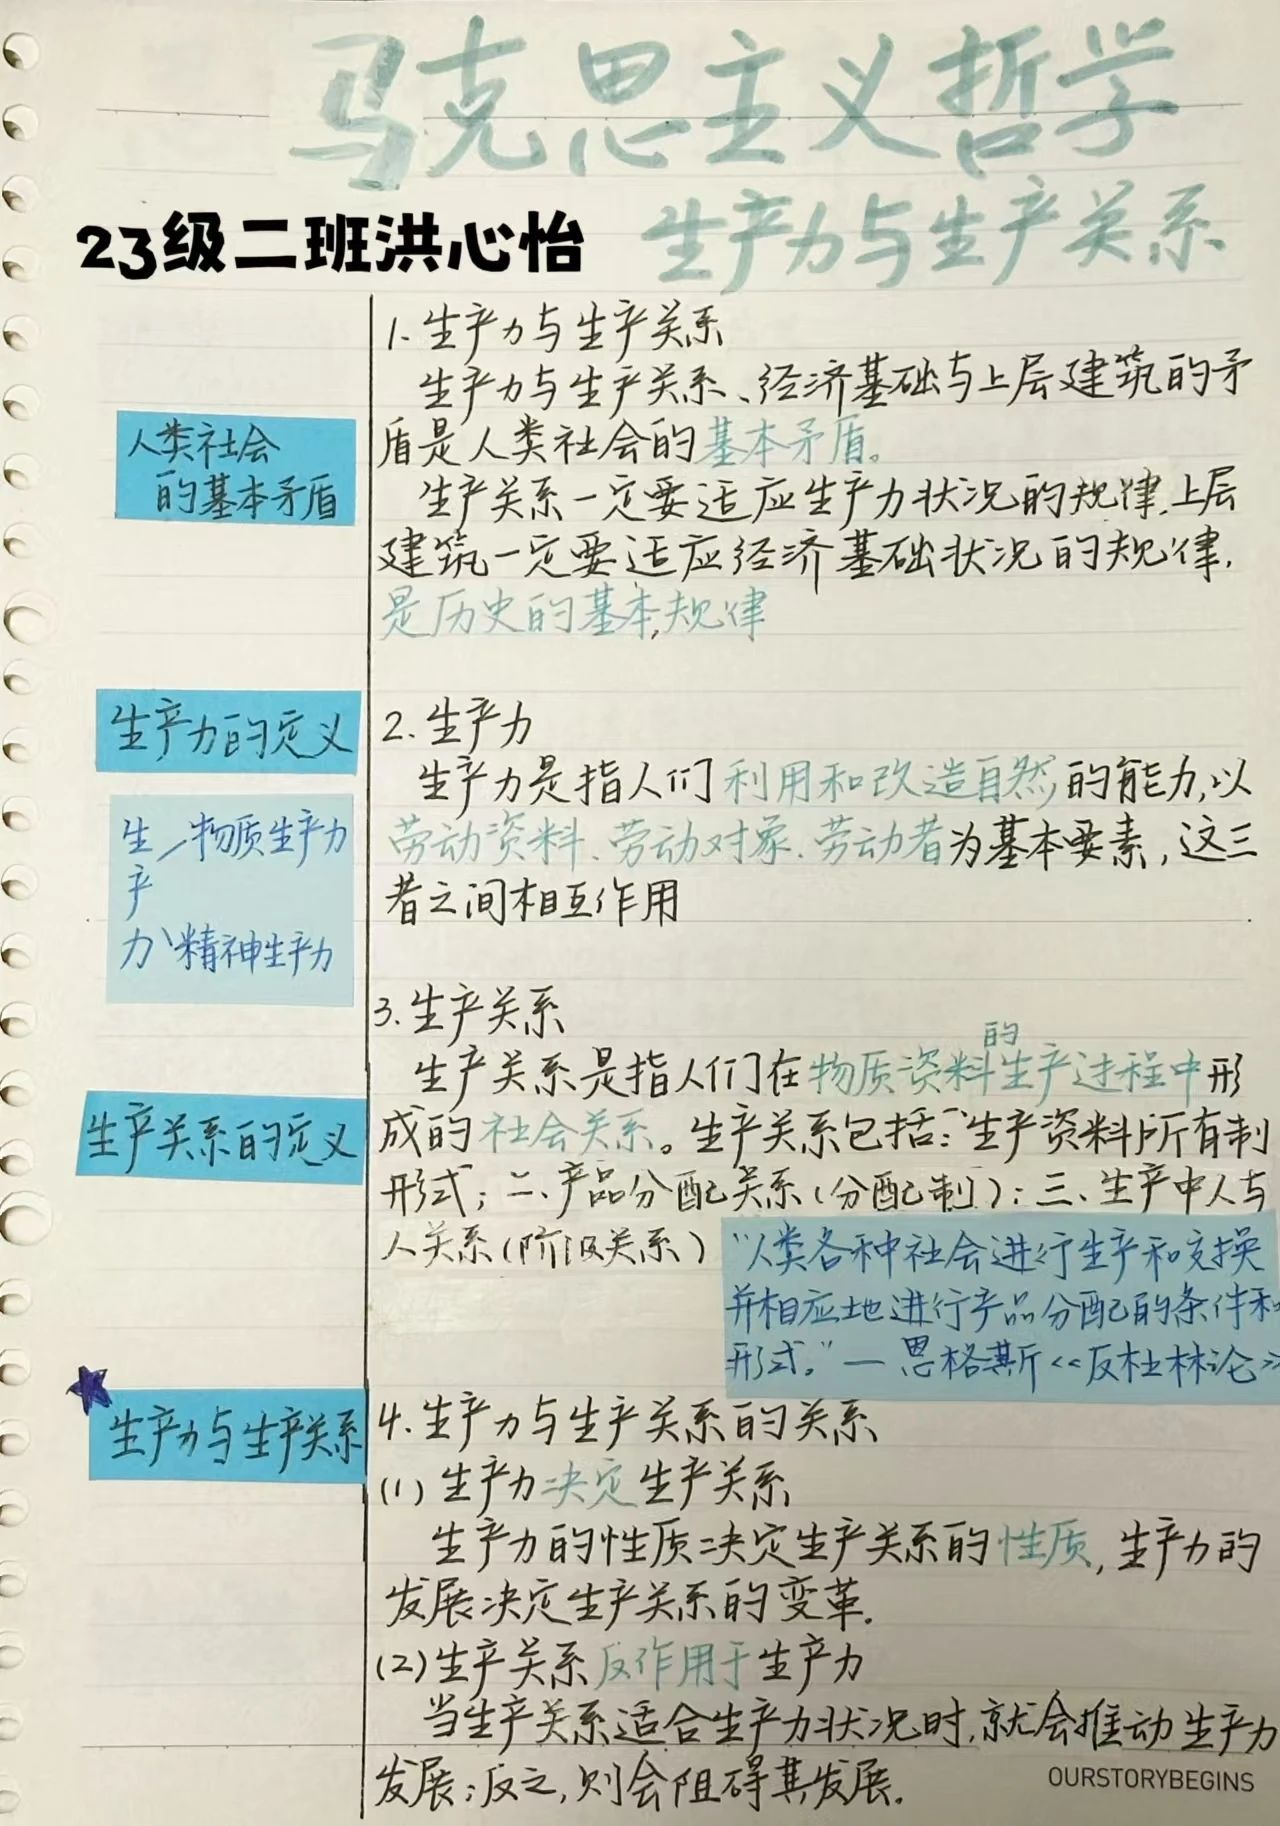 马克思主义哲学
生产力与生产关系
23级二班洪心怡
1. 生产力与生产关系
生产力与生产关系、经济基础与上层建筑的矛
盾是人类社会的基本矛盾。
生产关系一定要适应生产力状况的规律,上层
建筑一定要适应经济基础状况的规律,
是历史的基本规律
人类社会
的基本矛盾
2. 生产力
生产力是指人们利用和改造自然的能力,以
劳动资料、劳动对象、劳动者为基本要素,这三
者之间相互作用
生产力的定义
生产力
物质生产力
精神生产力
3. 生产关系
生产关系是指人们在物质资料的生产过程中形
成的社会关系。生产关系包括:一、生产资料所有制
形式;二、产品分配关系(分配制);三、生产中人与
人关系(阶级关系)
生产关系的定义
“人类各种社会进行生产和交换
并相应地进行产品分配的条件和
形式。”—恩格斯《反杜林论》
4. 生产力与生产关系的关系
(1) 生产力决定生产关系
生产力的性质决定生产关系的性质,生产力的
发展决定生产关系的变革.
(2) 生产关系反作用于生产力
当生产关系适合生产力状况时,就会推动生产力
发展;反之,则会阻碍其发展.
生产力与生产关系
OURSTORYBEGINS